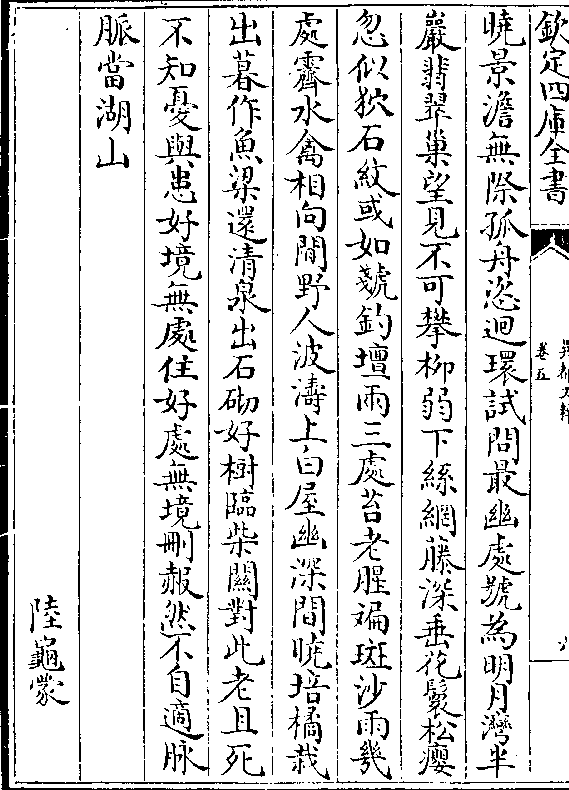 欽定四庫全書
卷五
曉景澹無際孤舟恣迴環試問最幽處號為明月灣半
巖翡翠巢望見不可攀柳弱下絲網藤深垂花鬘松癭
忽似狖石紋或如虦釣壇兩三處苔老腥斒斑沙雨幾
處霽水禽相向閒野人波濤上白屋幽深間曉培橘栽
出暮作魚梁還清泉出石砌好樹臨柴關對此老且死
不知憂與患好境無處住好處無境刪赧然不自適脈
脈當湖山
陸龜蒙